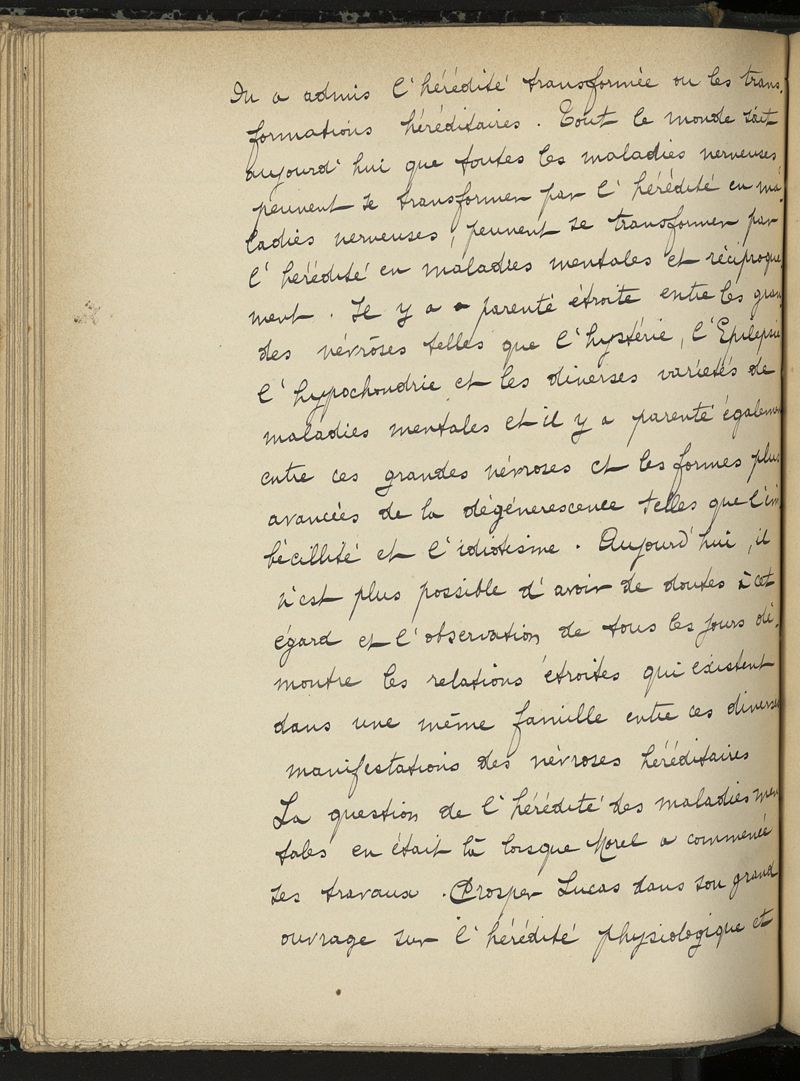 On a admis l'hérédité transformée ou les trans-
formations héréditaires. Tout le monde sait
aujourd'hui que toutes les maladies nerveuses
peuvent se transformer par l'hérédité en ma-
ladies nerveuses, peuvent se transformer par
l'hérédité en maladies mentales et réciproque
ment. Il y a parenté étroite entre les gran
des névroses telles que l'hystérie, l'Epilepsie
l'hypochondrie et les diverses varietés de
maladies mentales et il y a parenté égalemen
entre ces grandes névroses et les formes plus
avancées de la dégénerescence telles que l'im
bécillité et l'idiotisme. Aujourd'hui, il
n'est plus possible d'avoir de doutes à cet
égard et l'observation de tous les jours dé-
montre les relations étroites qui existent
dans une même famille entre ces diverses
manifestations des névroses héréditaires
La question de l'hérédité des maladies men
tales en était là lorsque Morel a commencé
ses travaux. Prosper Lucas dans son grand
ouvrage sur l'hérédité physiologique et